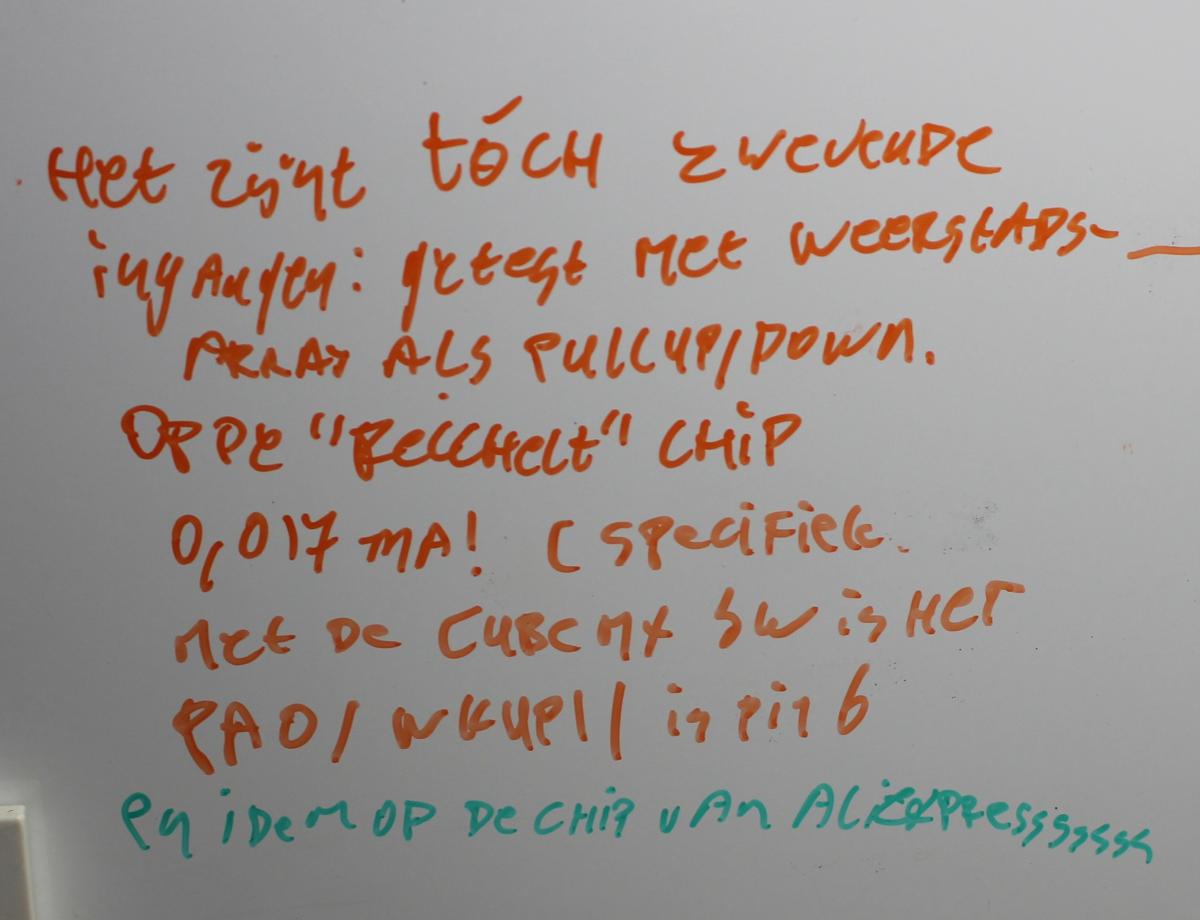 Het zijnt tóch zwevende
ingangen: getest met weerstads-
array als pullup/down.
Op de "Bellchelt" chip
0,017 mA! (specifiek
met de CubeMX SW is het
PA0/WKUP1/ is pin 6
en idem op de chip van Aliexpresssssssss